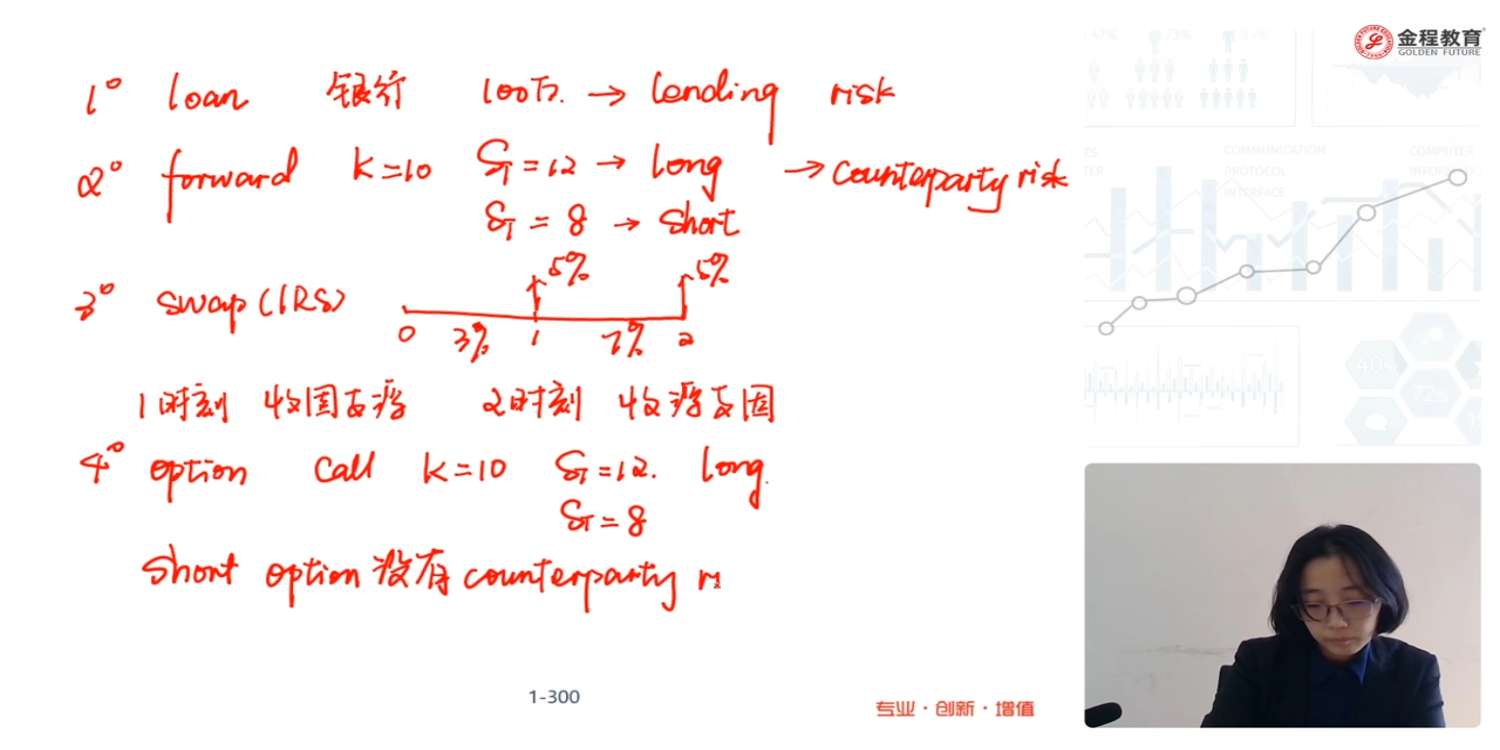 金程教育
GOLDEN FUTURE
1° loan 银行 100万. → lending risk
2° forward K=10 S_T=12 → long → counterparty risk
S_T=8 → short
5% 5%
3° swap (IRS)
0 3% 1 7% 2
1时刻 收固支浮 2时刻 收浮支固
4° option call K=10 S_T=12. long.
S_T=8
short option 没有 counterparty r
1-300
专业·创新·增值
COMMUNICATION
PROTOCOL
INTERFACE
COMPUTER